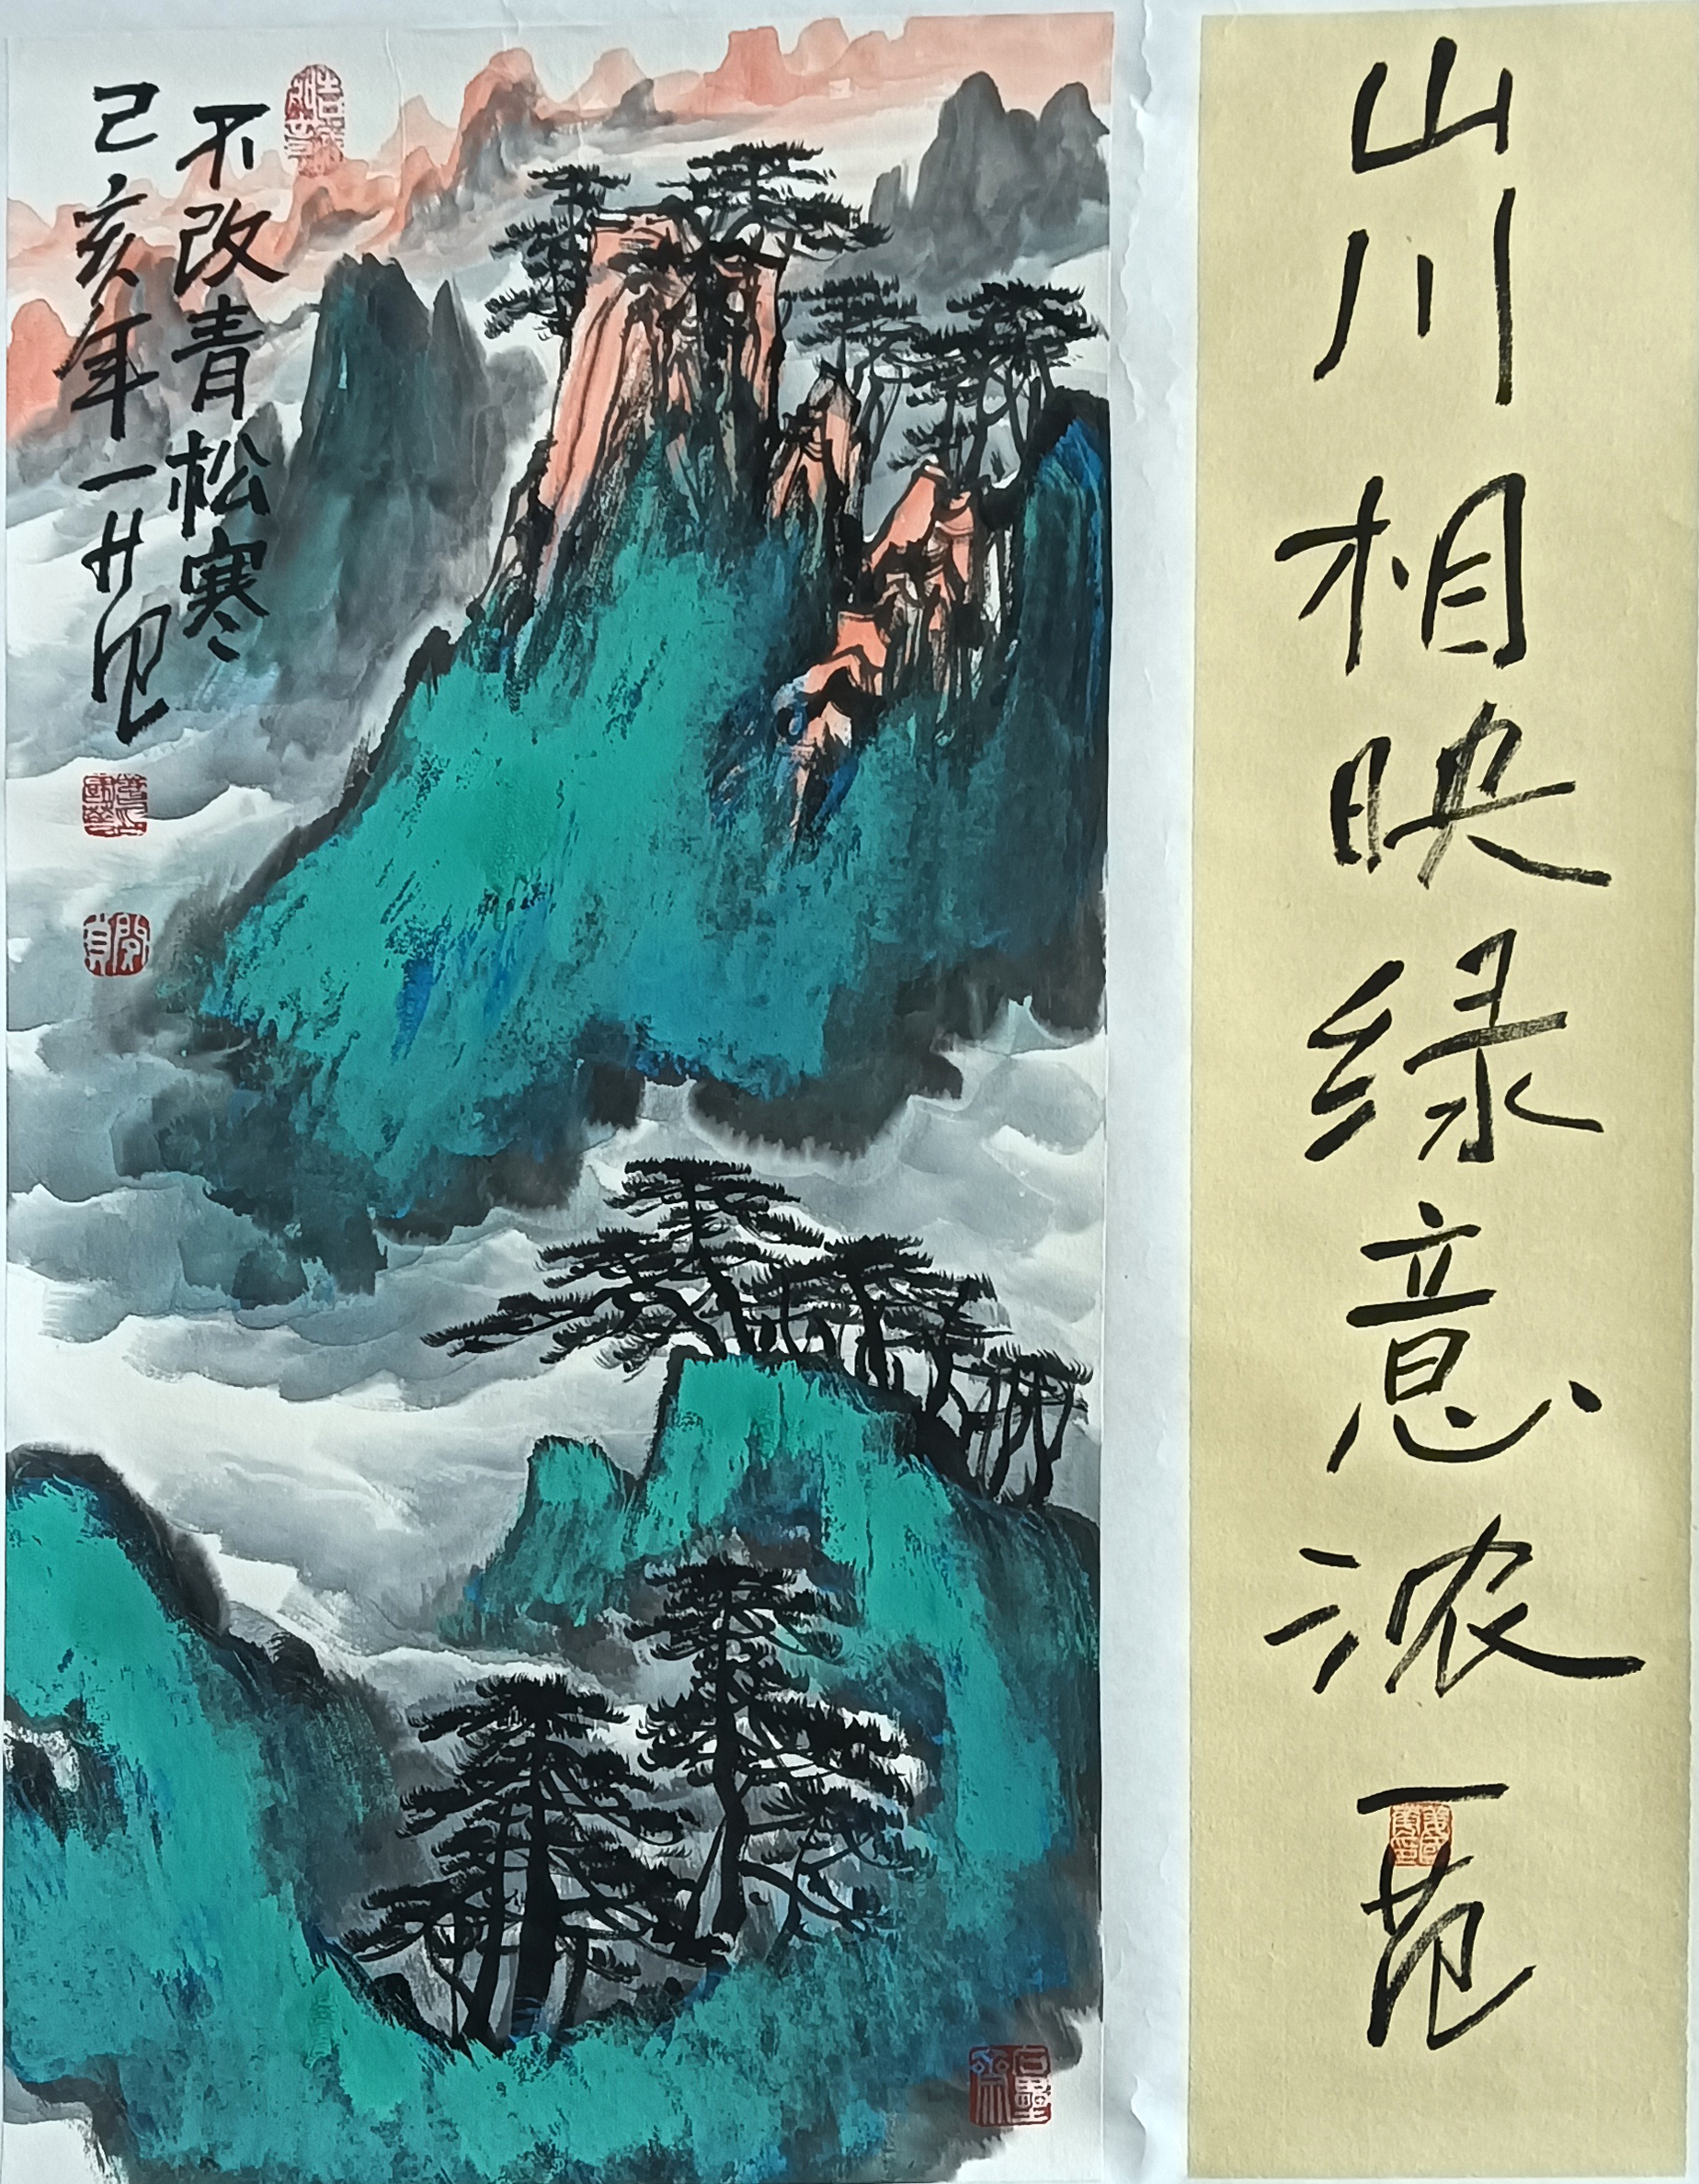 山川相映绿意浓 一苑
不改青松寒
己亥年一苑